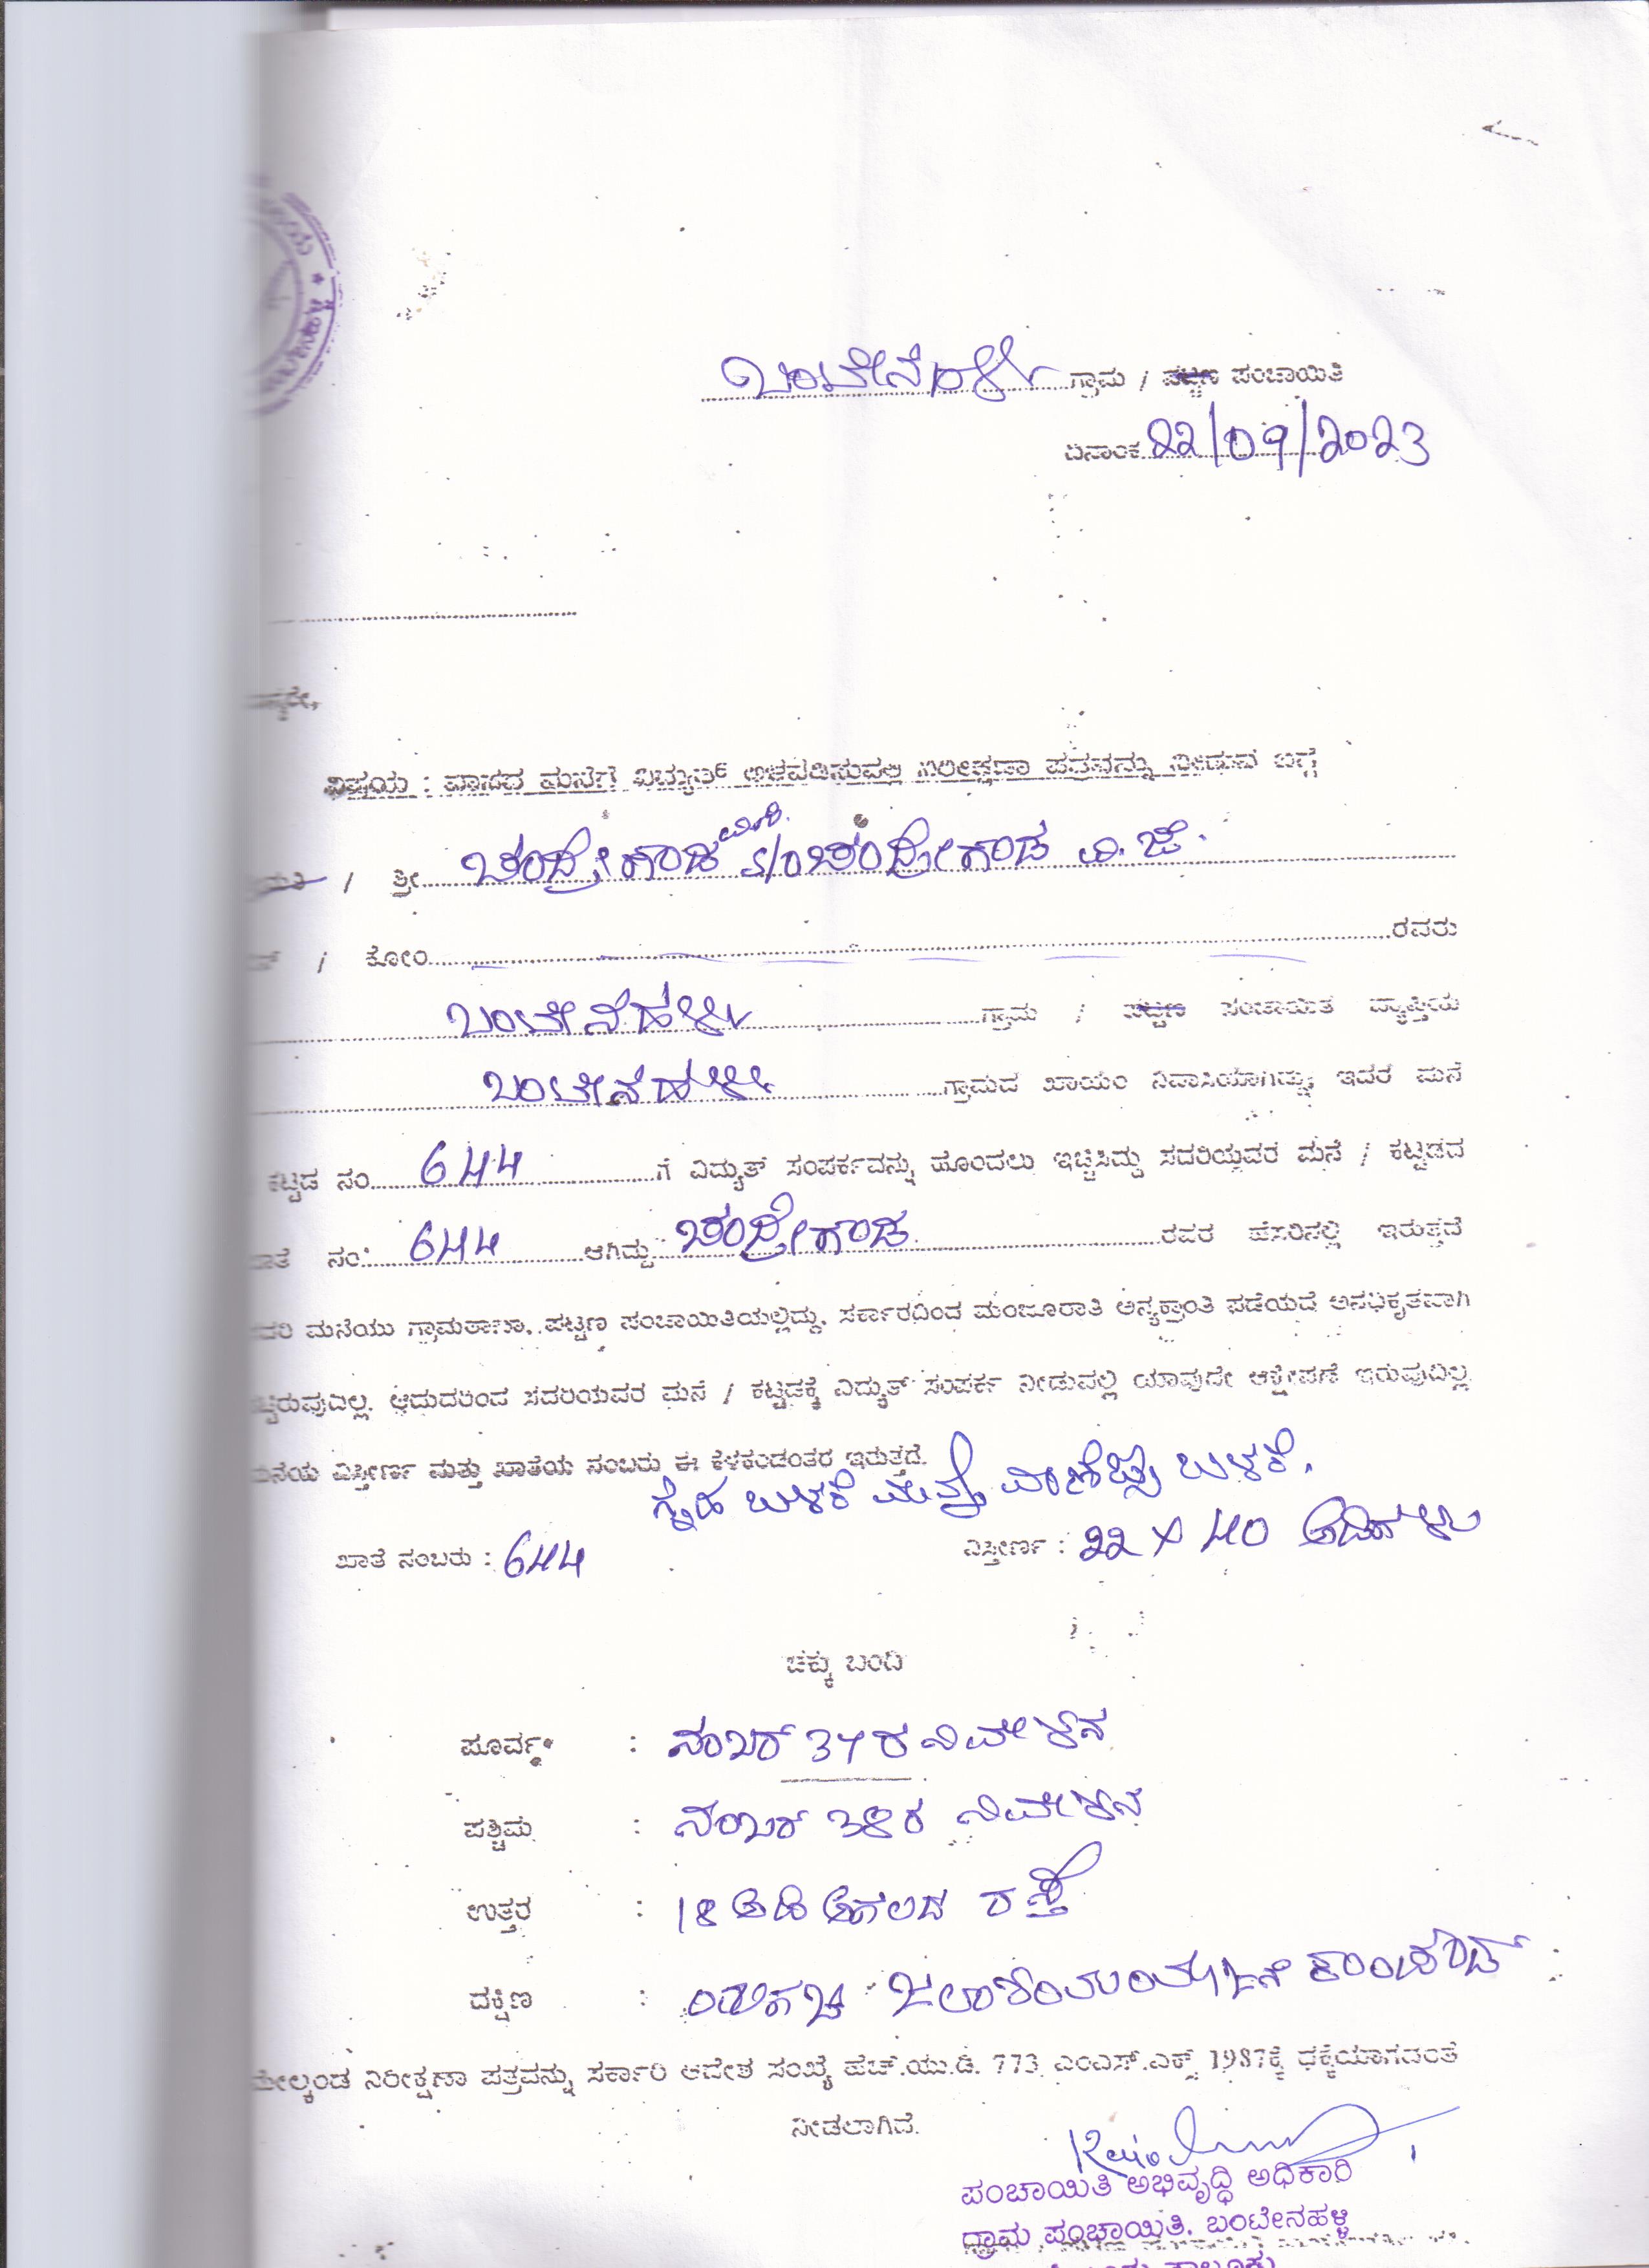 ಬಂಟೇನಹಳ್ಳಿ ಗ್ರಾಮ / ಪಟ್ಟಣ ಪಂಚಾಯಿತಿ
ದಿನಾಂಕ 22/09/2023
ವಿಷಯ : ವಾಸದ ಮನೆಗೆ ವಿದ್ಯುತ್ ಅಳವಡಿಸುವಲ್ಲಿ ನಿರೀಕ್ಷಣಾ ಪತ್ರವನ್ನು ನೀಡುವ ಬಗ್ಗೆ
/ ಶ್ರೀ ಚಂದ್ರೇಗೌಡ S/o ಚಂದ್ರೇಗೌಡ ವಿ.ಜೆ.
/ ಕೋಂ ರವರು
ಬಂಟೇನಹಳ್ಳಿ ಗ್ರಾಮ / ಪಟ್ಟಣ ಪಂಚಾಯಿತಿ ವ್ಯಾಪ್ತಿಯ
ಬಂಟೇನಹಳ್ಳಿ ಗ್ರಾಮದ ಖಾಯಂ ನಿವಾಸಿಯಾಗಿದ್ದು, ಇವರ ಮನೆ
ಕಟ್ಟಡ ನಂ 644 ಗೆ ವಿದ್ಯುತ್ ಸಂಪರ್ಕವನ್ನು ಹೊಂದಲು ಇಚ್ಚಿಸಿದ್ದು ಸದರಿಯವರ ಮನೆ / ಕಟ್ಟಡದ
ನಂ: 644 ಆಗಿದ್ದು ಚಂದ್ರೇಗೌಡ ರವರ ಹೆಸರಿನಲ್ಲಿ ಇರುತ್ತದೆ
ಮನೆಯು ಗ್ರಾಮಠಾಣಾ, ಪಟ್ಟಣ ಪಂಚಾಯಿತಿಯಲ್ಲಿದ್ದು, ಸರ್ಕಾರದಿಂದ ಮಂಜೂರಾತಿ ಅನ್ಯಕ್ರಾಂತಿ ಪಡೆಯದೆ ಅನಧಿಕೃತವಾಗಿ
ಆದುದರಿಂದ ಸದರಿಯವರ ಮನೆ / ಕಟ್ಟಡಕ್ಕೆ ವಿದ್ಯುತ್ ಸಂಪರ್ಕ ನೀಡುವಲ್ಲಿ ಯಾವುದೇ ಆಕ್ಷೇಪಣೆ ಇರುವುದಿಲ್ಲ
ವಿಸ್ತೀರ್ಣ ಮತ್ತು ಖಾತೆಯ ನಂಬರು ಈ ಕೆಳಕಂಡಂತರ ಇರುತ್ತದೆ.
ಗೃಹ ಬಳಕೆ ಮತ್ತು ವಾಣಿಜ್ಯ ಬಳಕೆ.
ಖಾತೆ ನಂಬರು : 644 ವಿಸ್ತೀರ್ಣ : 22 x 40 ಅಡಿಗಳು
ಚಕ್ಕು ಬಂದಿ
ಪೂರ್ವ : ನಂಬರ್ 37ರ ನಿವೇಶನ
ಪಶ್ಚಿಮ : ನಂಬರ್ 38ರ ನಿವೇಶನ
ಉತ್ತರ : 18 ಅಡಿ ಅಗಲದ ರಸ್ತೆ
ದಕ್ಷಿಣ : ಯಗಚಿ
ಮೇಲ್ಕಂಡ ನಿರೀಕ್ಷಣಾ ಪತ್ರವನ್ನು ಸರ್ಕಾರಿ ಆದೇಶ ಸಂಖ್ಯೆ ಹೆಚ್.ಯು.ಡಿ. 773 ಎಂಎಸ್.ಎಕ್ಸ್ 1987ಕ್ಕೆ ಧಕ್ಕೆಯಾಗದಂತೆ
ನೀಡಲಾಗಿದೆ.
ಪಂಚಾಯಿತಿ ಅಭಿವೃದ್ಧಿ ಅಧಿಕಾರಿ
ಗ್ರಾಮ ಪಂಚಾಯಿತಿ, ಬಂಟೇನಹಳ್ಳಿ